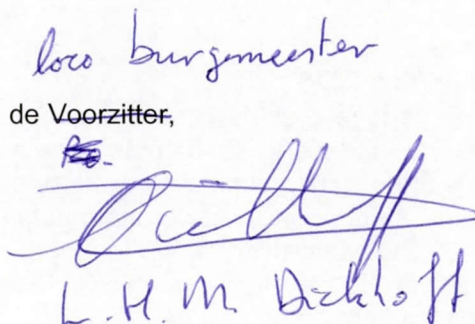 loco burgemeester
de Voorzitter,
L.H.M. Dickhoff